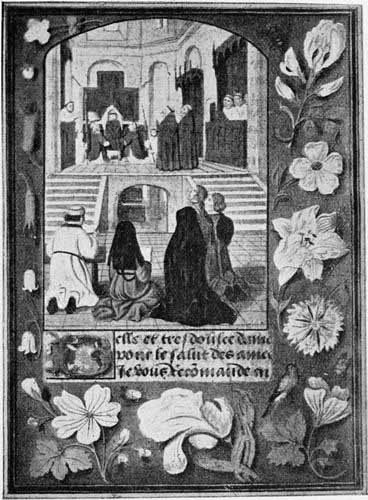 elle et tresdousce dame
pour le salut des ames
Je vous recōmande en